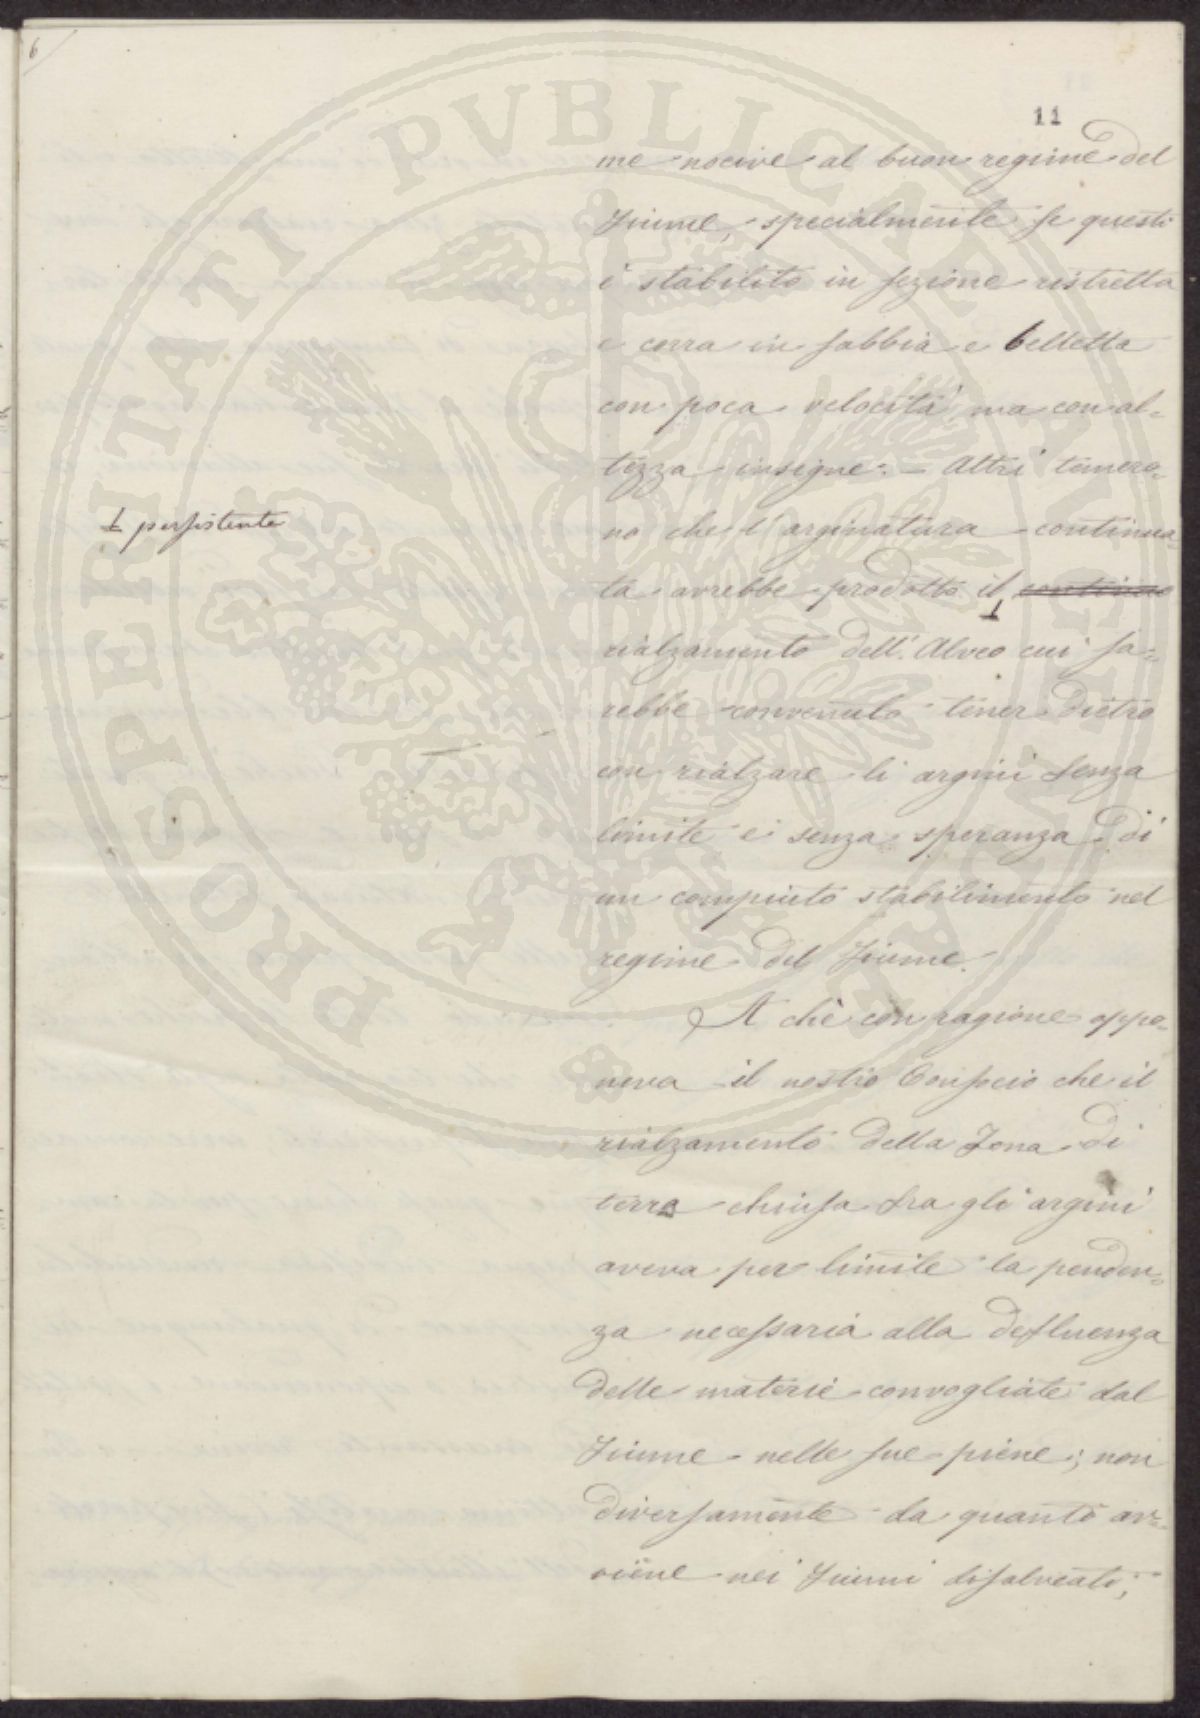 6/
11
me nocive al buon regime del
Fiume, specialmente se questi
è stabilito in sezione ristretta
e corra in sabbia e belletta
con poca velocità, ma con al=
tezza insigne. - Altri temero=
no che l'arginatura continua=
ta avrebbe prodotto il ⊥ continuo
⊥ persistente
rialzamento dell'Alveo cui sa=
rebbe convenuto tener dietro
con rialzare li argini senza
limite e senza speranza di
un compiuto stabilimento nel
regime del Fiume.
A chè con ragione oppo=
neva il nostro Consocio che il
rialzamento della Zona di
terra chiusa fra gli argini
aveva per limite la penden=
za necessaria alla defluenza
delle materie convogliate dal
Fiume nelle sue piene; non
diversamente da quanto av=
viene nei Fiumi disalveati;
PROSPERITATI PVBLICAE AVGENDAE